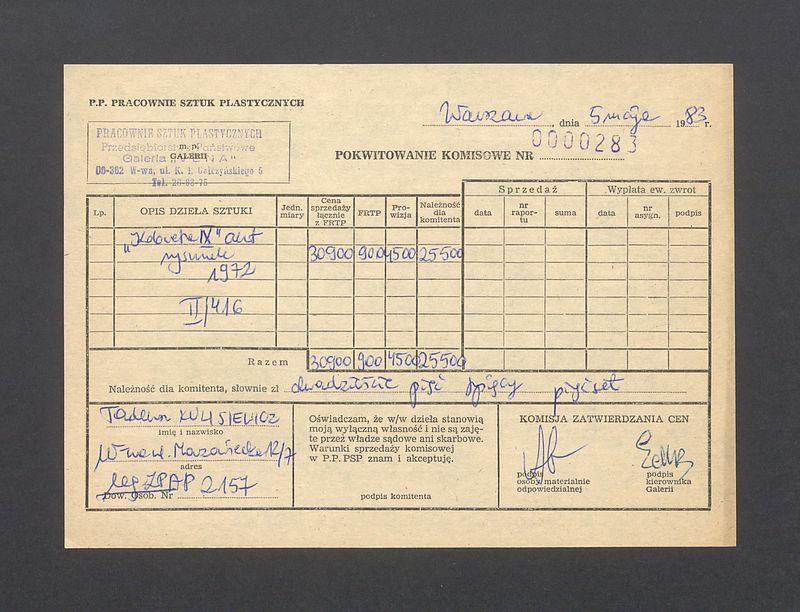 P.P. PRACOWNIE SZTUK PLASTYCZNYCH
Warszawa, dnia 5 maja 1983 r.
PRACOWNIE SZTUK PLASTYCZNYCH
Przedsiębiorstwo Państwowe
m. p.
GALERII
06-362 W-wa, ul. K. I. Gałczyńskiego 5
Tel. 26-83-75
0000283
POKWITOWANIE KOMISOWE NR
Lp. OPIS DZIEŁA SZTUKI Jedn. miary Cena sprzedaży łącznie z FRTP FRTP Prowizja Należność dla komitenta Sprzedaż Wypłata ew. zwrot
data nr raportu suma data nr asygn. podpis
IX"
rysunek 30900 900 4500 25500
1972
II/416
Razem 30900 900 4500 25500
Należność dla komitenta, słownie zł dwadzieścia pięć tysięcy pięćset
Tadeusz KULISIEWICZ
imię i nazwisko
W-wa ul. 12/7
adres
leg ZPAP 2157
Dow. Osob. Nr
Oświadczam, że w/w dzieła stanowią
moją wyłączną własność i nie są zaję-
te przez władze sądowe ani skarbowe.
Warunki sprzedaży komisowej
w P.P. PSP znam i akceptuję.
podpis komitenta
KOMISJA ZATWIERDZANIA CEN
podpis
osoby materialnie
odpowiedzialnej
podpis
kierownika
Galerii